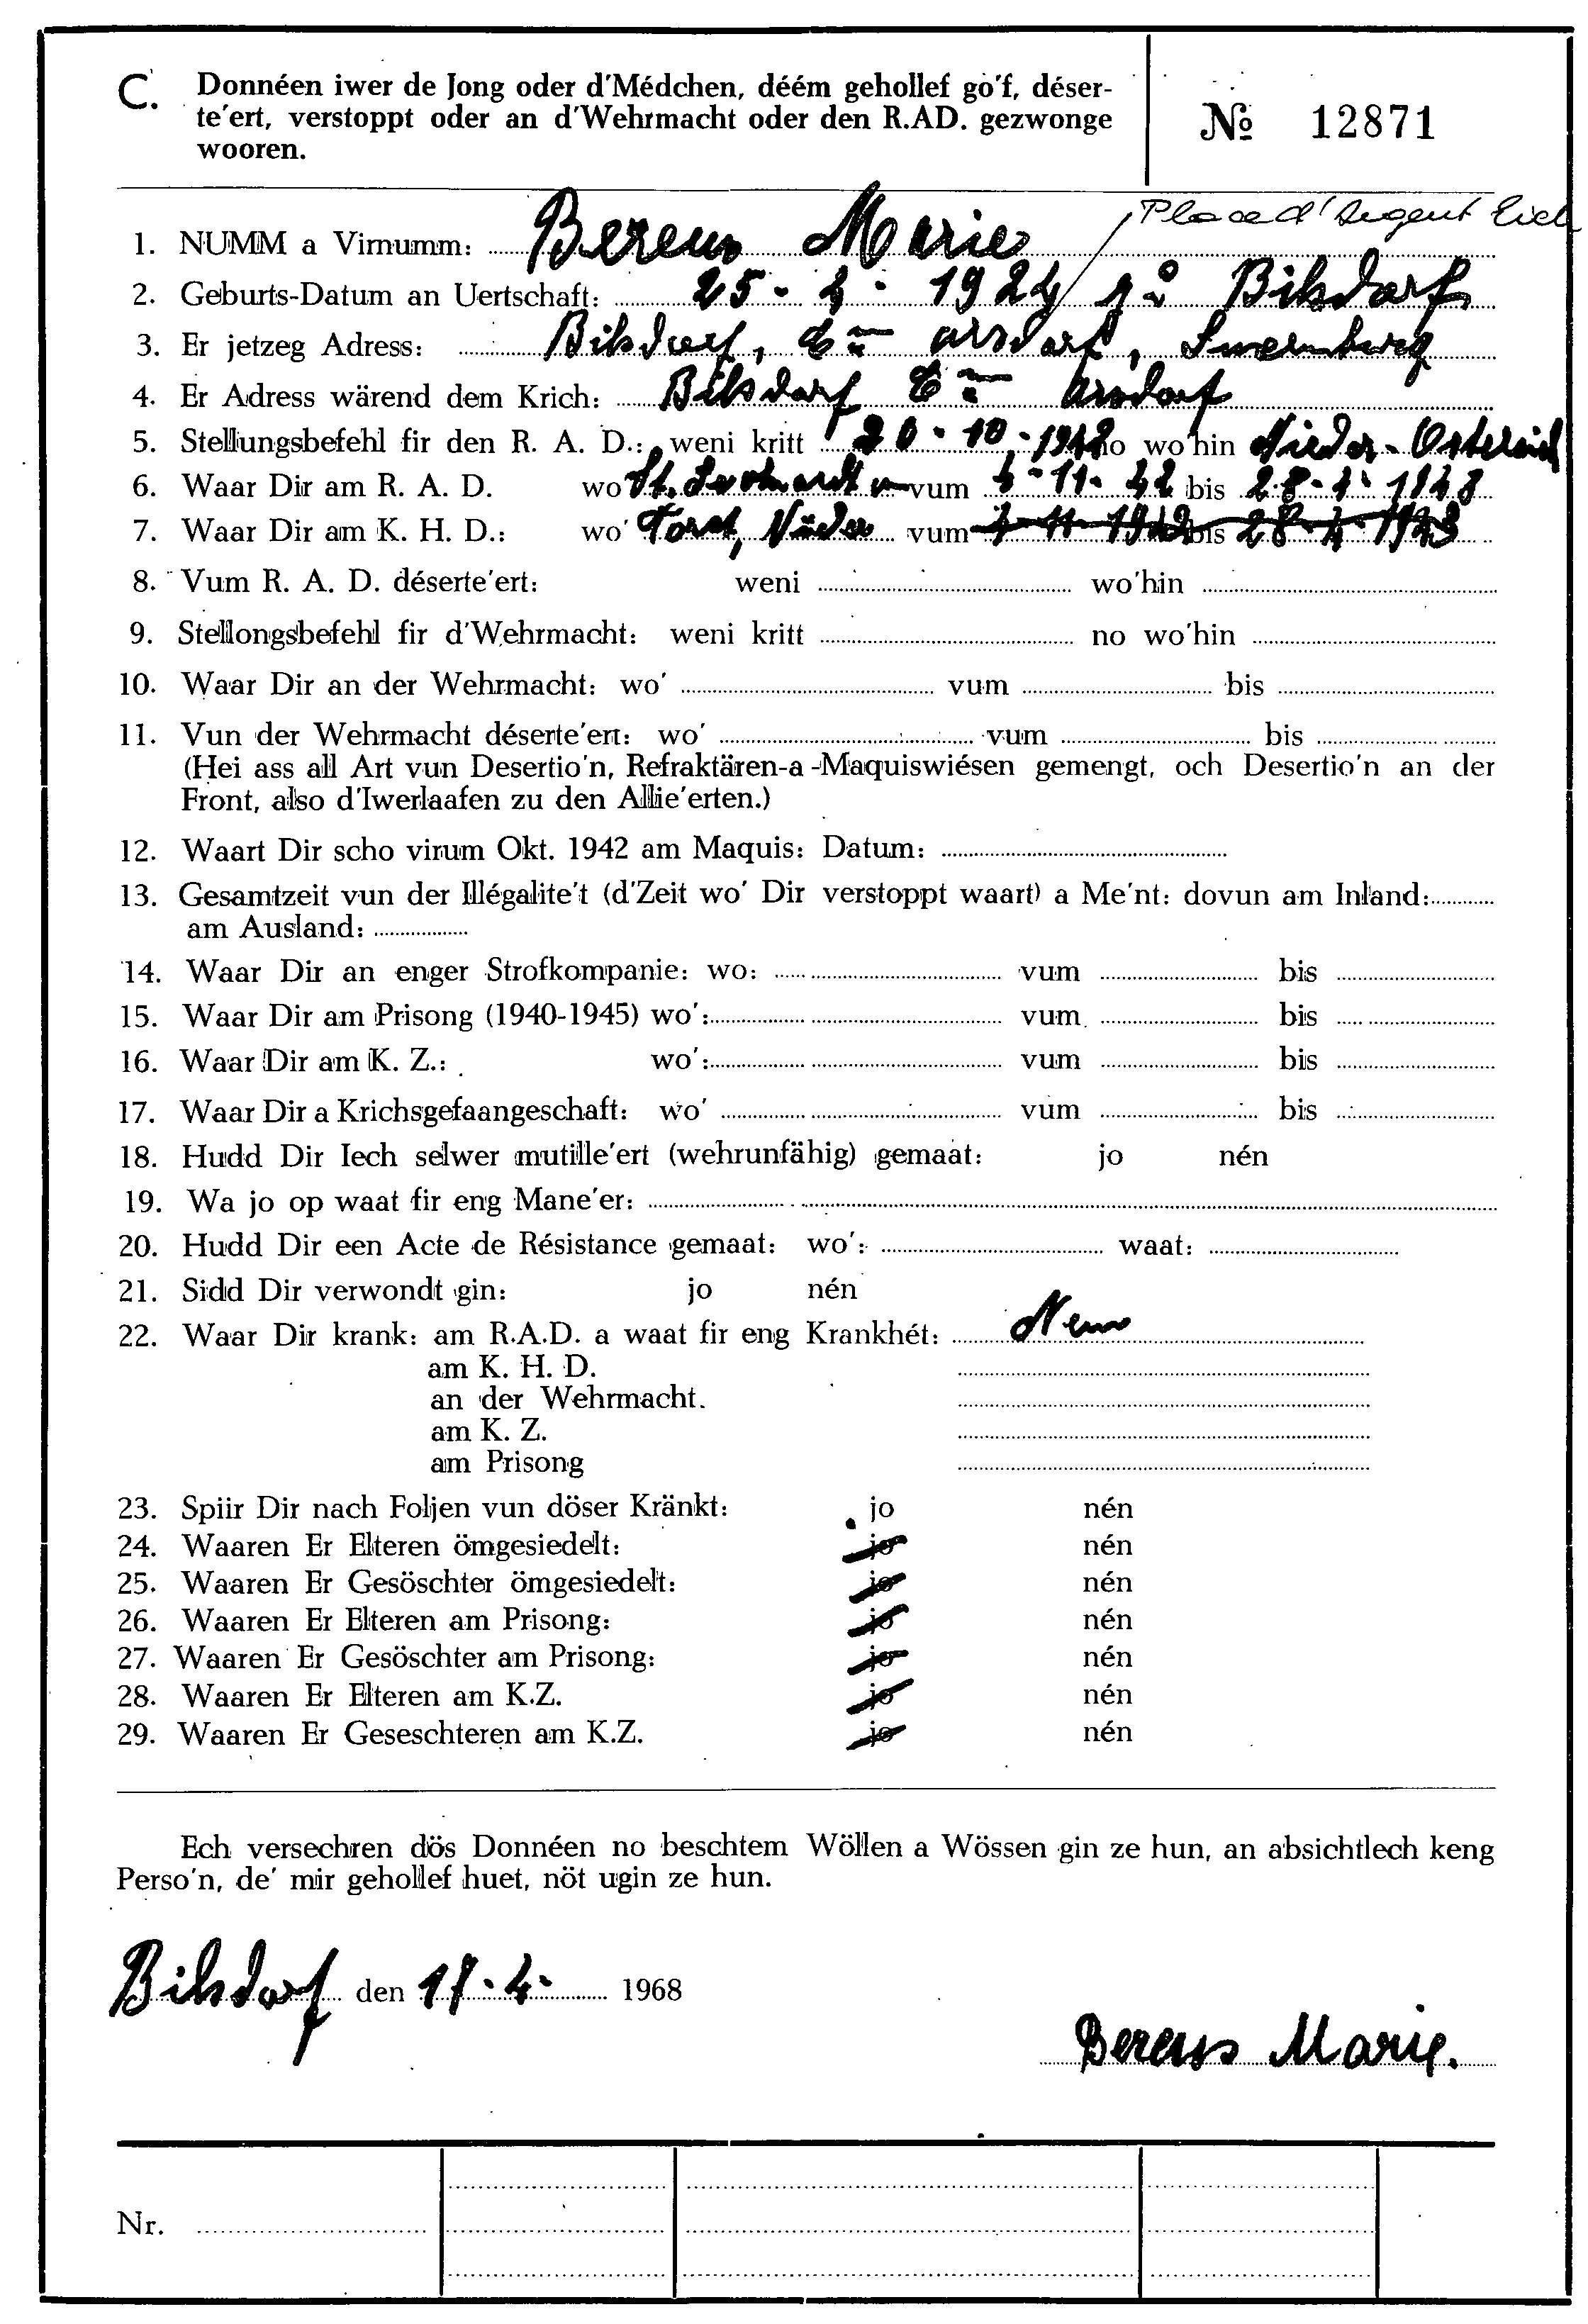 C. Donnéen iwer de Jong oder d'Médchen, déém gehollef go'f, déser-
te'ert, verstoppt oder an d'Wehrmacht oder den R.AD. gezwonge
wooren.
№ 12871
Place d'Argent Eich
1. NUMM a Virnumm: Berens Marie
2. Geburts-Datum an Uertschaft: 25 - 4 - 1924 Bilsdorf
3. Er jetzeg Adress: Bilsdorf, Arsdorf, Luxemburg
4. Er Adress wärend dem Krich: Bilsdorf Arsdorf
5. Stellungsbefehl fir den R. A. D.: weni kritt 20 - 10 - 1942 no wo'hin Nieder-Östereich
6. Waar Dir am R. A. D. wo St. vum 4 - 11 - 42 bis 28 - 4 - 1943
7. Waar Dir am K. H. D.: wo' Forst, vum 4 - 11 - 1942 bis 28 - 4 - 1943
8. Vum R. A. D. déserte'ert: weni wo'hin
9. Stellongsbefehl fir d'Wehrmacht: weni kritt no wo'hin
10. Waar Dir an der Wehrmacht: wo' vum bis
11. Vun der Wehrmacht déserte'ert: wo' vum bis
(Hei ass all Art vun Desertio'n, Refraktären-a-Maquiswiésen gemengt, och Desertio'n an der
Front, also d'Iwerlaafen zu den Allie'erten.)
12. Waart Dir scho virum Okt. 1942 am Maquis: Datum:
13. Gesamtzeit vun der Illégalite't (d'Zeit wo' Dir verstoppt waart) a Me'nt: dovun am Inland:
am Ausland:
14. Waar Dir an enger Strofkompanie: wo: vum bis
15. Waar Dir am Prisong (1940-1945) wo': vum bis
16. Waar Dir am K. Z.: wo': vum bis
17. Waar Dir a Krichsgefaangeschaft: wo' vum bis
18. Hudd Dir Iech selwer mutille'ert (wehrunfähig) gemaat: jo nén
19. Wa jo op waat fir eng Mane'er:
20. Hudd Dir een Acte de Résistance gemaat: wo': waat:
21. Sidd Dir verwondt gin: jo nén
22. Waar Dir krank: am R.A.D. a waat fir eng Krankhét: Nein
am K. H. D.
an der Wehrmacht.
am K. Z.
am Prisong
23. Spiir Dir nach Foljen vun döser Kränkt: jo nén
24. Waaren Er Elteren ömgesiedelt: jo nén
25. Waaren Er Gesöschter ömgesiedelt: jo nén
26. Waaren Er Elteren am Prisong: jo nén
27. Waaren Er Gesöschter am Prisong: jo nén
28. Waaren Er Elteren am K.Z. jo nén
29. Waaren Er Geseschteren am K.Z. jo nén
Ech versechren dös Donnéen no beschtem Wöllen a Wössen gin ze hun, an absichtlech keng
Perso'n, de' mir gehollef huet, nöt ugin ze hun.
Bilsdorf den 17 - 4 - 1968
Berens Marie.
Nr.